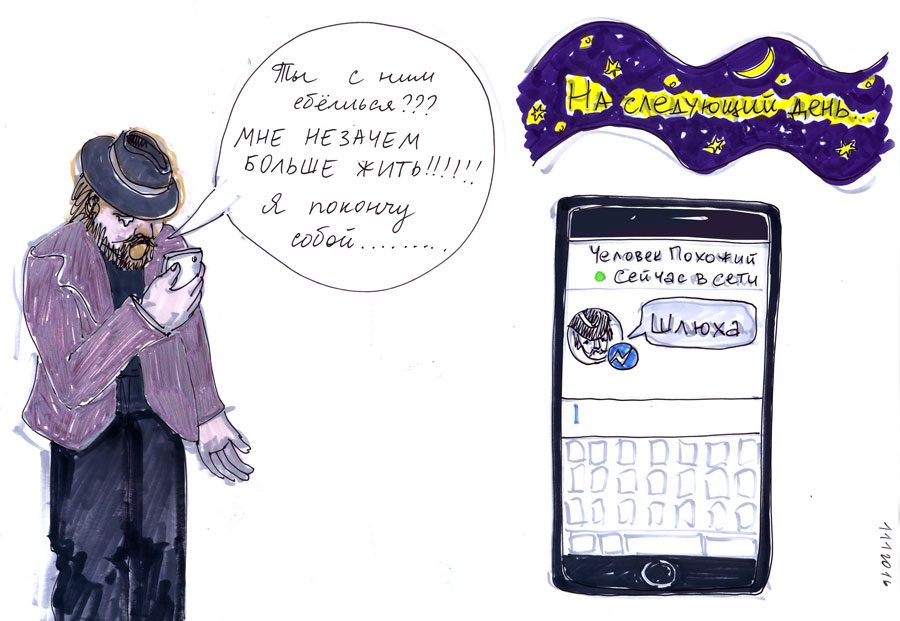 Ты с ним
ебёшься???
МНЕ НЕЗАЧЕМ
БОЛЬШЕ ЖИТЬ!!!!!!
Я покончу
собой.........
На следующий день...
Человек Похожий
Сейчас в сети
Шлюха
1112016